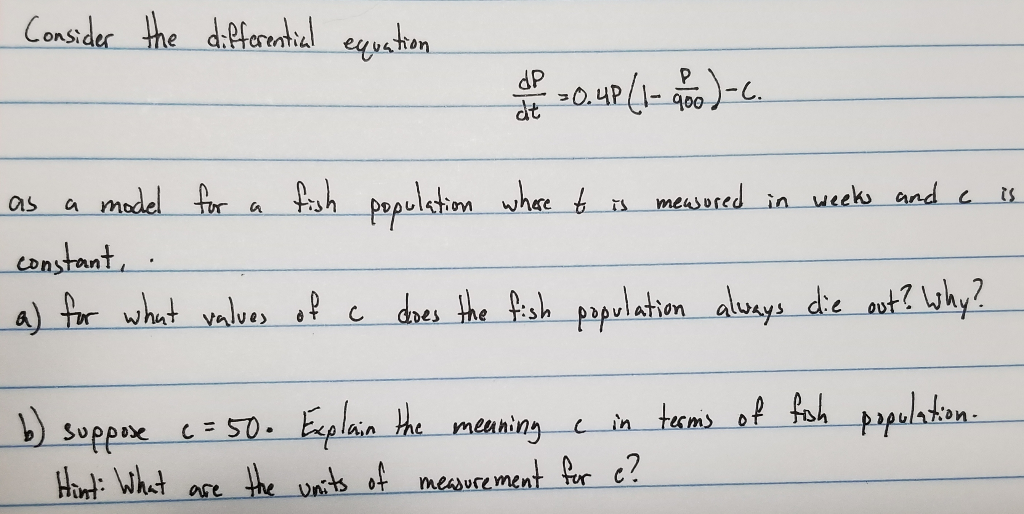 Consider the differential equation
dP/dt = 0.4P(1- P/900)-c.
as a model for a fish population where t is measured in weeks and c is
constant, .
a) for what values of c does the fish population always die out? Why?
b) suppose c = 50. Explain the meaning c in terms of fish population.
Hint: What are the units of measurement for c?